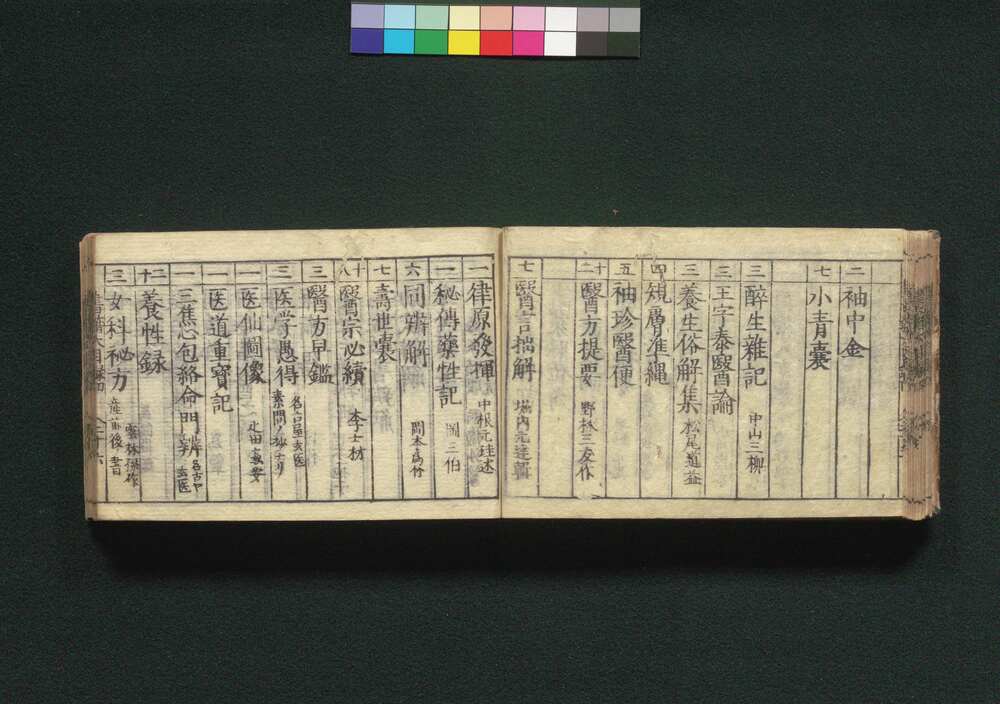 二 袖中金
七 小青囊
三 醉生雜記 中山三柳
三 王宇泰醫論
三 養生俗解集 松尾道益
四 規層準縄
五 袖珍醫便
二十 醫方提要 野林三友作
七 醫言拙解 堀内元達輯
一 律原發揮 中根元珪述
一 秘傳藥性記 岡三伯
六 同辨解 岡本為竹
七 壽世囊
十八 醫宗必續 李士材
三 醫方早鑑
三 医学愚得 名古屋玄医 素問ノ抄ナリ
一 医仙圖像
一 医道重寶記
一 三焦心包絡命門辨 名古ヤ玄医
二十 養性録
三 女科秘方 産前後書